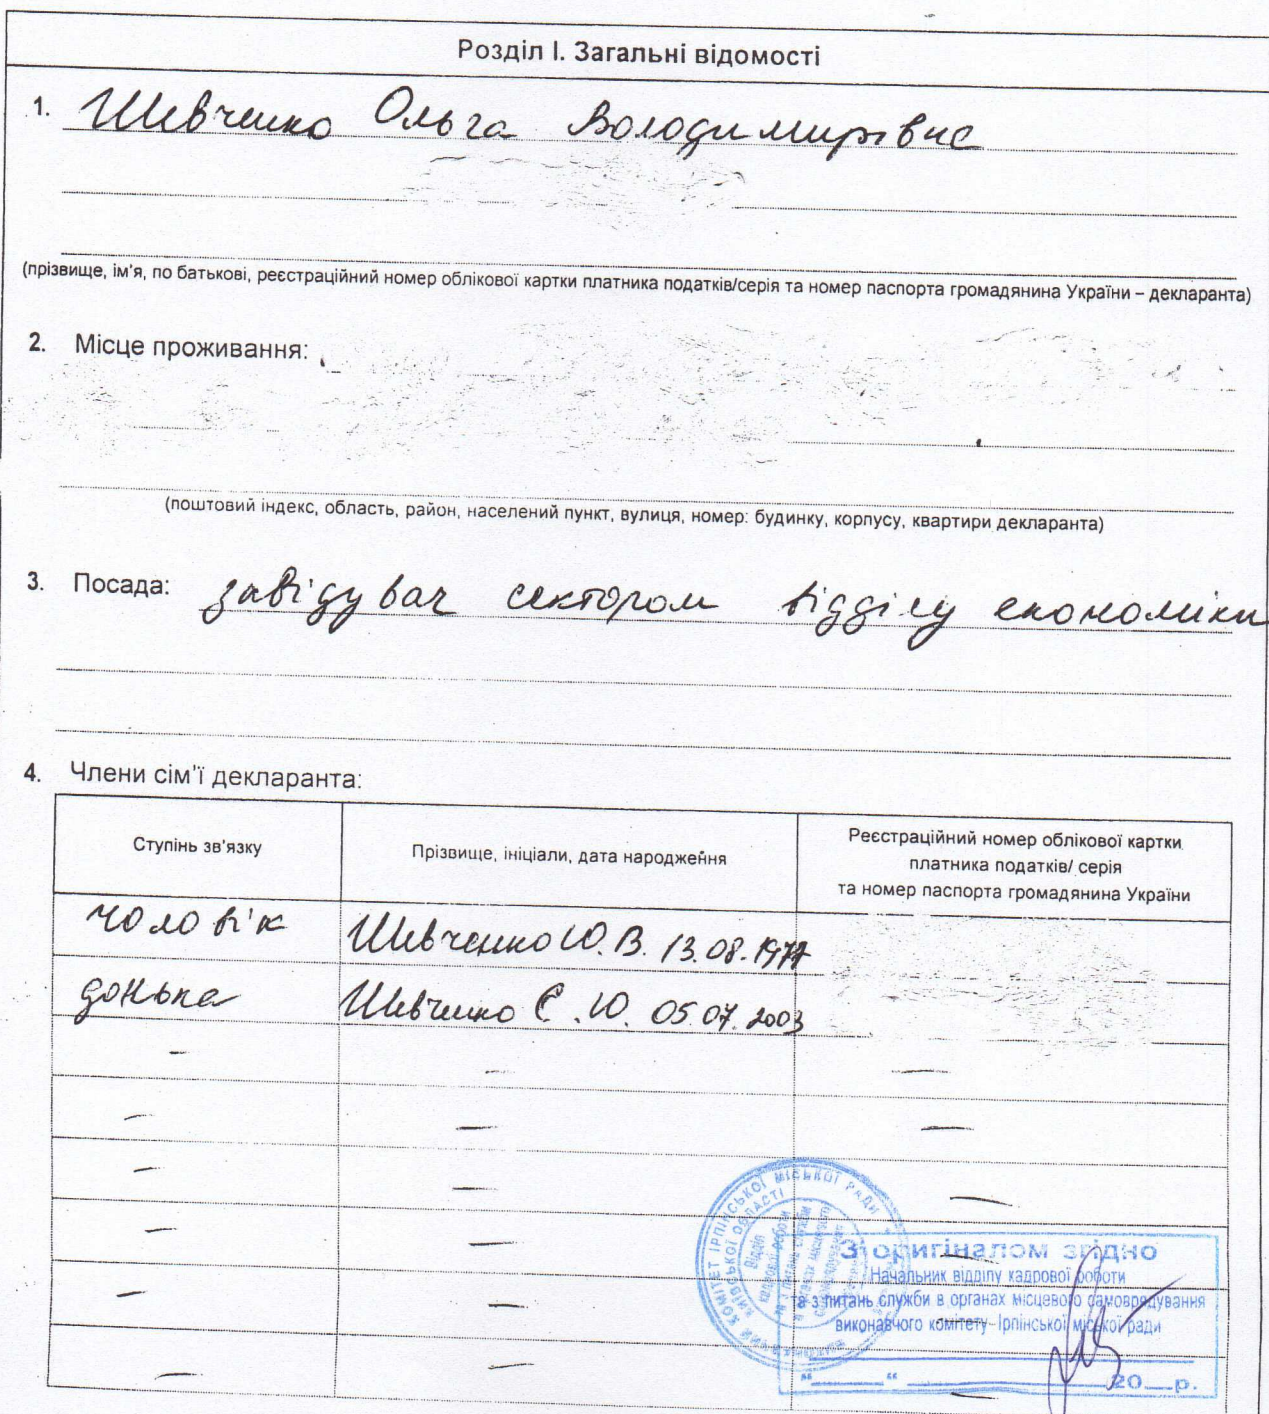 Розділ I. Загальні відомості
1. Шевченко Ольга Володимирівна
(прізвище, ім'я, по батькові, реєстраційний номер облікової картки платника податків/серія та номер паспорта громадянина України – декларанта)
2. Місце проживання:
(поштовий індекс, область, район, населений пункт, вулиця, номер: будинку, корпусу, квартири декларанта)
3. Посада: завідувач сектором відділу економіки
4. Члени сім'ї декларанта:
Ступінь зв'язку
Прізвище, ініціали, дата народження
Реєстраційний номер облікової картки
платника податків/ серія
та номер паспорта громадянина України
чоловік Шевченко Ю. В. 13.08.1977
донька Шевченко Є. Ю. 05.07.2003
– – –
– – –
– – –
– – –
– – –
– – –
З оригіналом згідно
Начальник відділу кадрової роботи
та з питань служби в органах місцевого самоврядування
виконавчого комітету Ірпінської міської ради
"___" ___ 20__р.
КОМІТЕТ ІРПІНСЬКОЇ МІСЬКОЇ РАДИ
КИЇВСЬКОЇ ОБЛАСТІ
Відділ
кадрової роботи